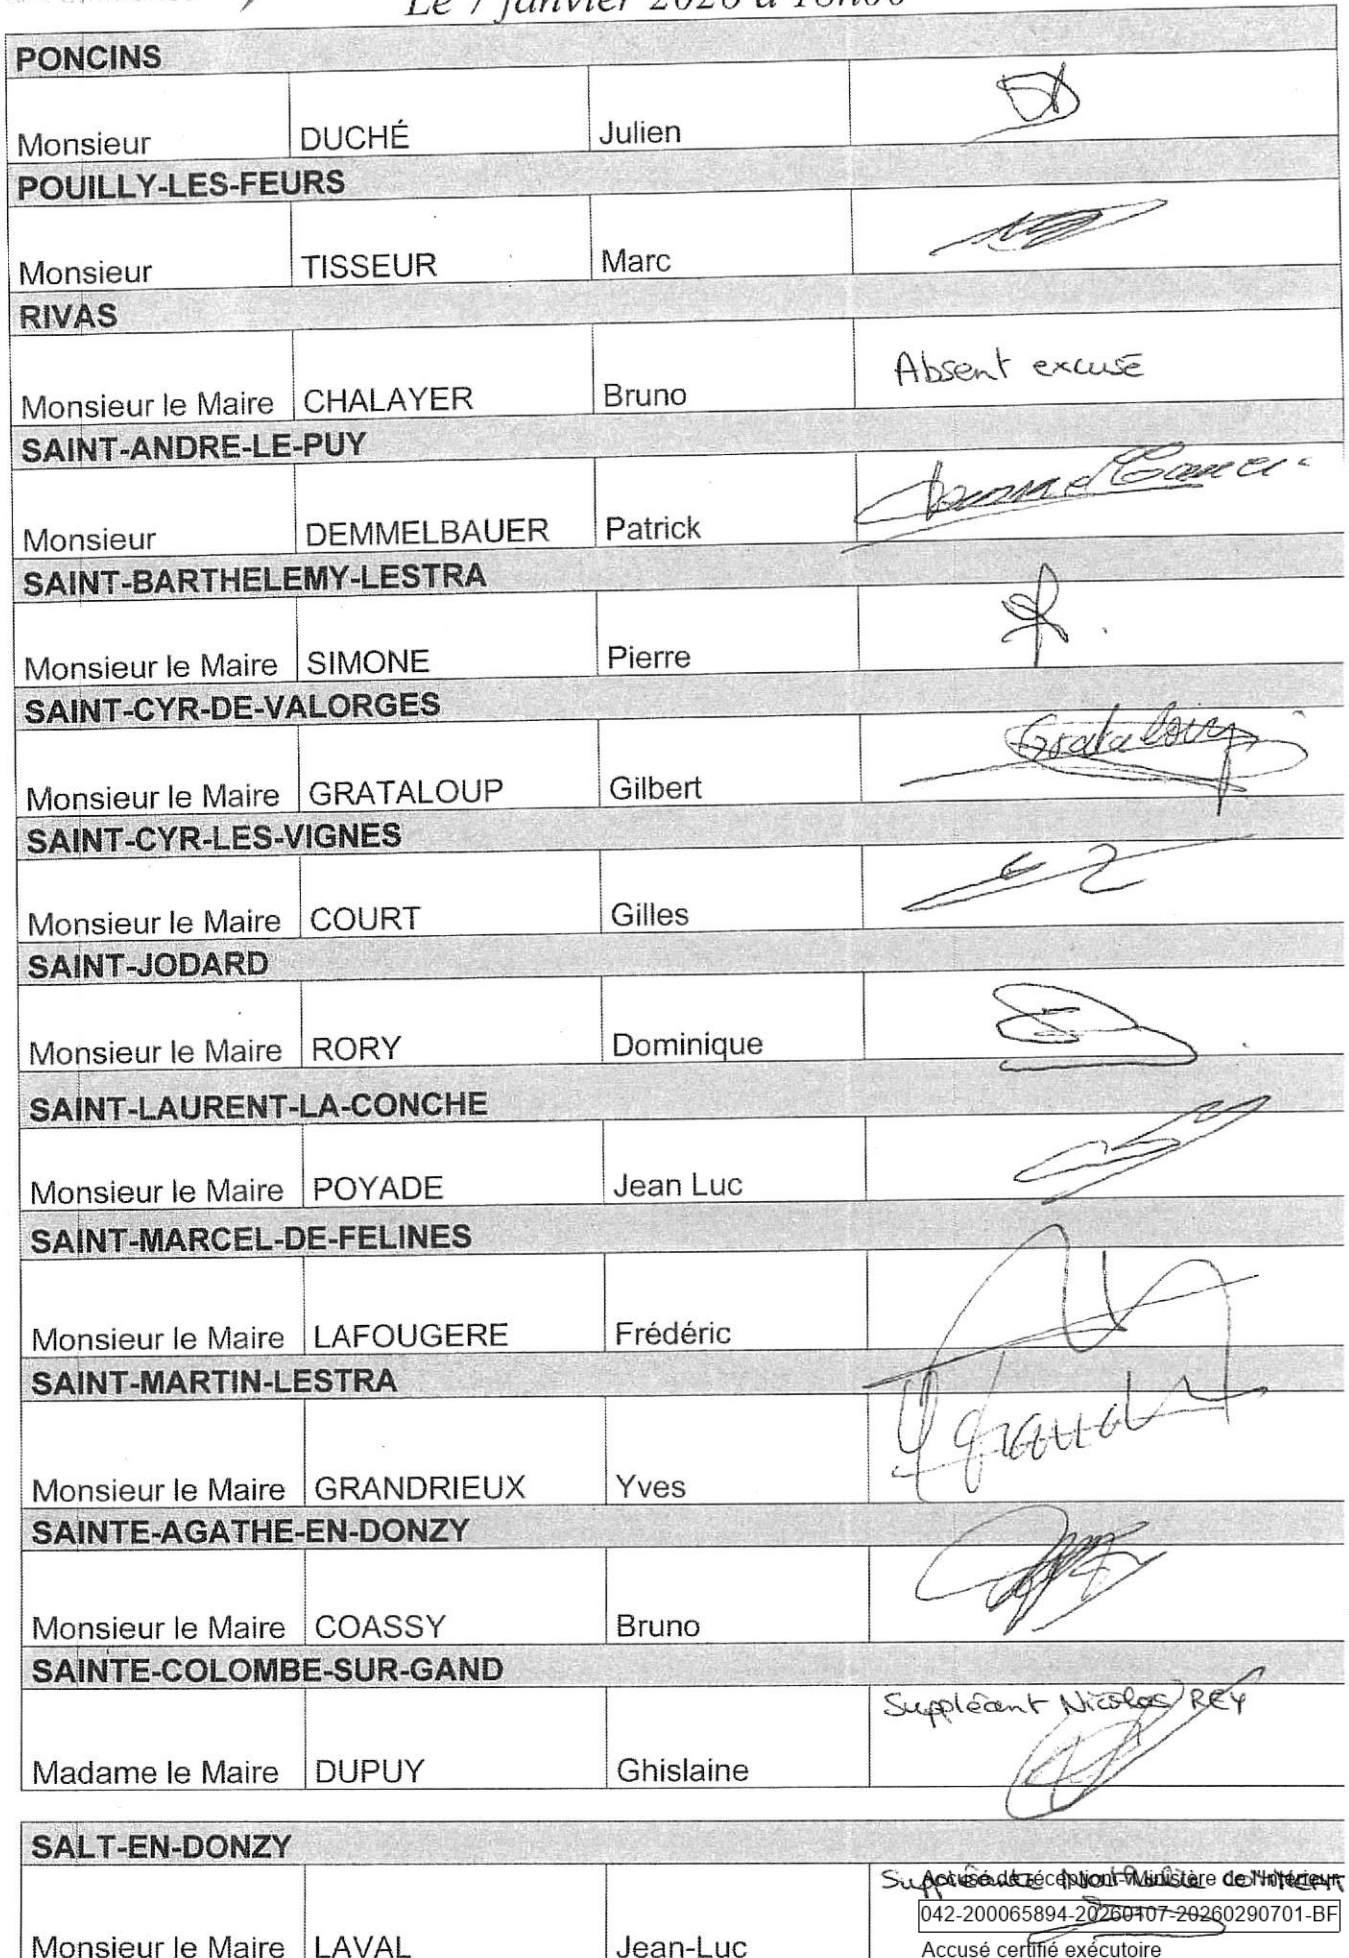 Le 7 janvier 2026 à 18h00
PONCINS
Monsieur DUCHÉ Julien
POUILLY-LES-FEURS
Monsieur TISSEUR Marc
RIVAS
Monsieur le Maire CHALAYER Bruno Absent excusé
SAINT-ANDRE-LE-PUY
Monsieur DEMMELBAUER Patrick
SAINT-BARTHELEMY-LESTRA
Monsieur le Maire SIMONE Pierre
SAINT-CYR-DE-VALORGES
Monsieur le Maire GRATALOUP Gilbert Grataloup
SAINT-CYR-LES-VIGNES
Monsieur le Maire COURT Gilles
SAINT-JODARD
Monsieur le Maire RORY Dominique
SAINT-LAURENT-LA-CONCHE
Monsieur le Maire POYADE Jean Luc
SAINT-MARCEL-DE-FELINES
Monsieur le Maire LAFOUGERE Frédéric
SAINT-MARTIN-LESTRA
Monsieur le Maire GRANDRIEUX Yves
SAINTE-AGATHE-EN-DONZY
Monsieur le Maire COASSY Bruno
SAINTE-COLOMBE-SUR-GAND
Suppléant Nicolas REY
Madame le Maire DUPUY Ghislaine
SALT-EN-DONZY
Suppléante
Accusé de réception - Ministère de l'Intérieur
042-200065894-20260107-20260290701-BF
Monsieur le Maire LAVAL Jean-Luc
Accusé certifié exécutoire